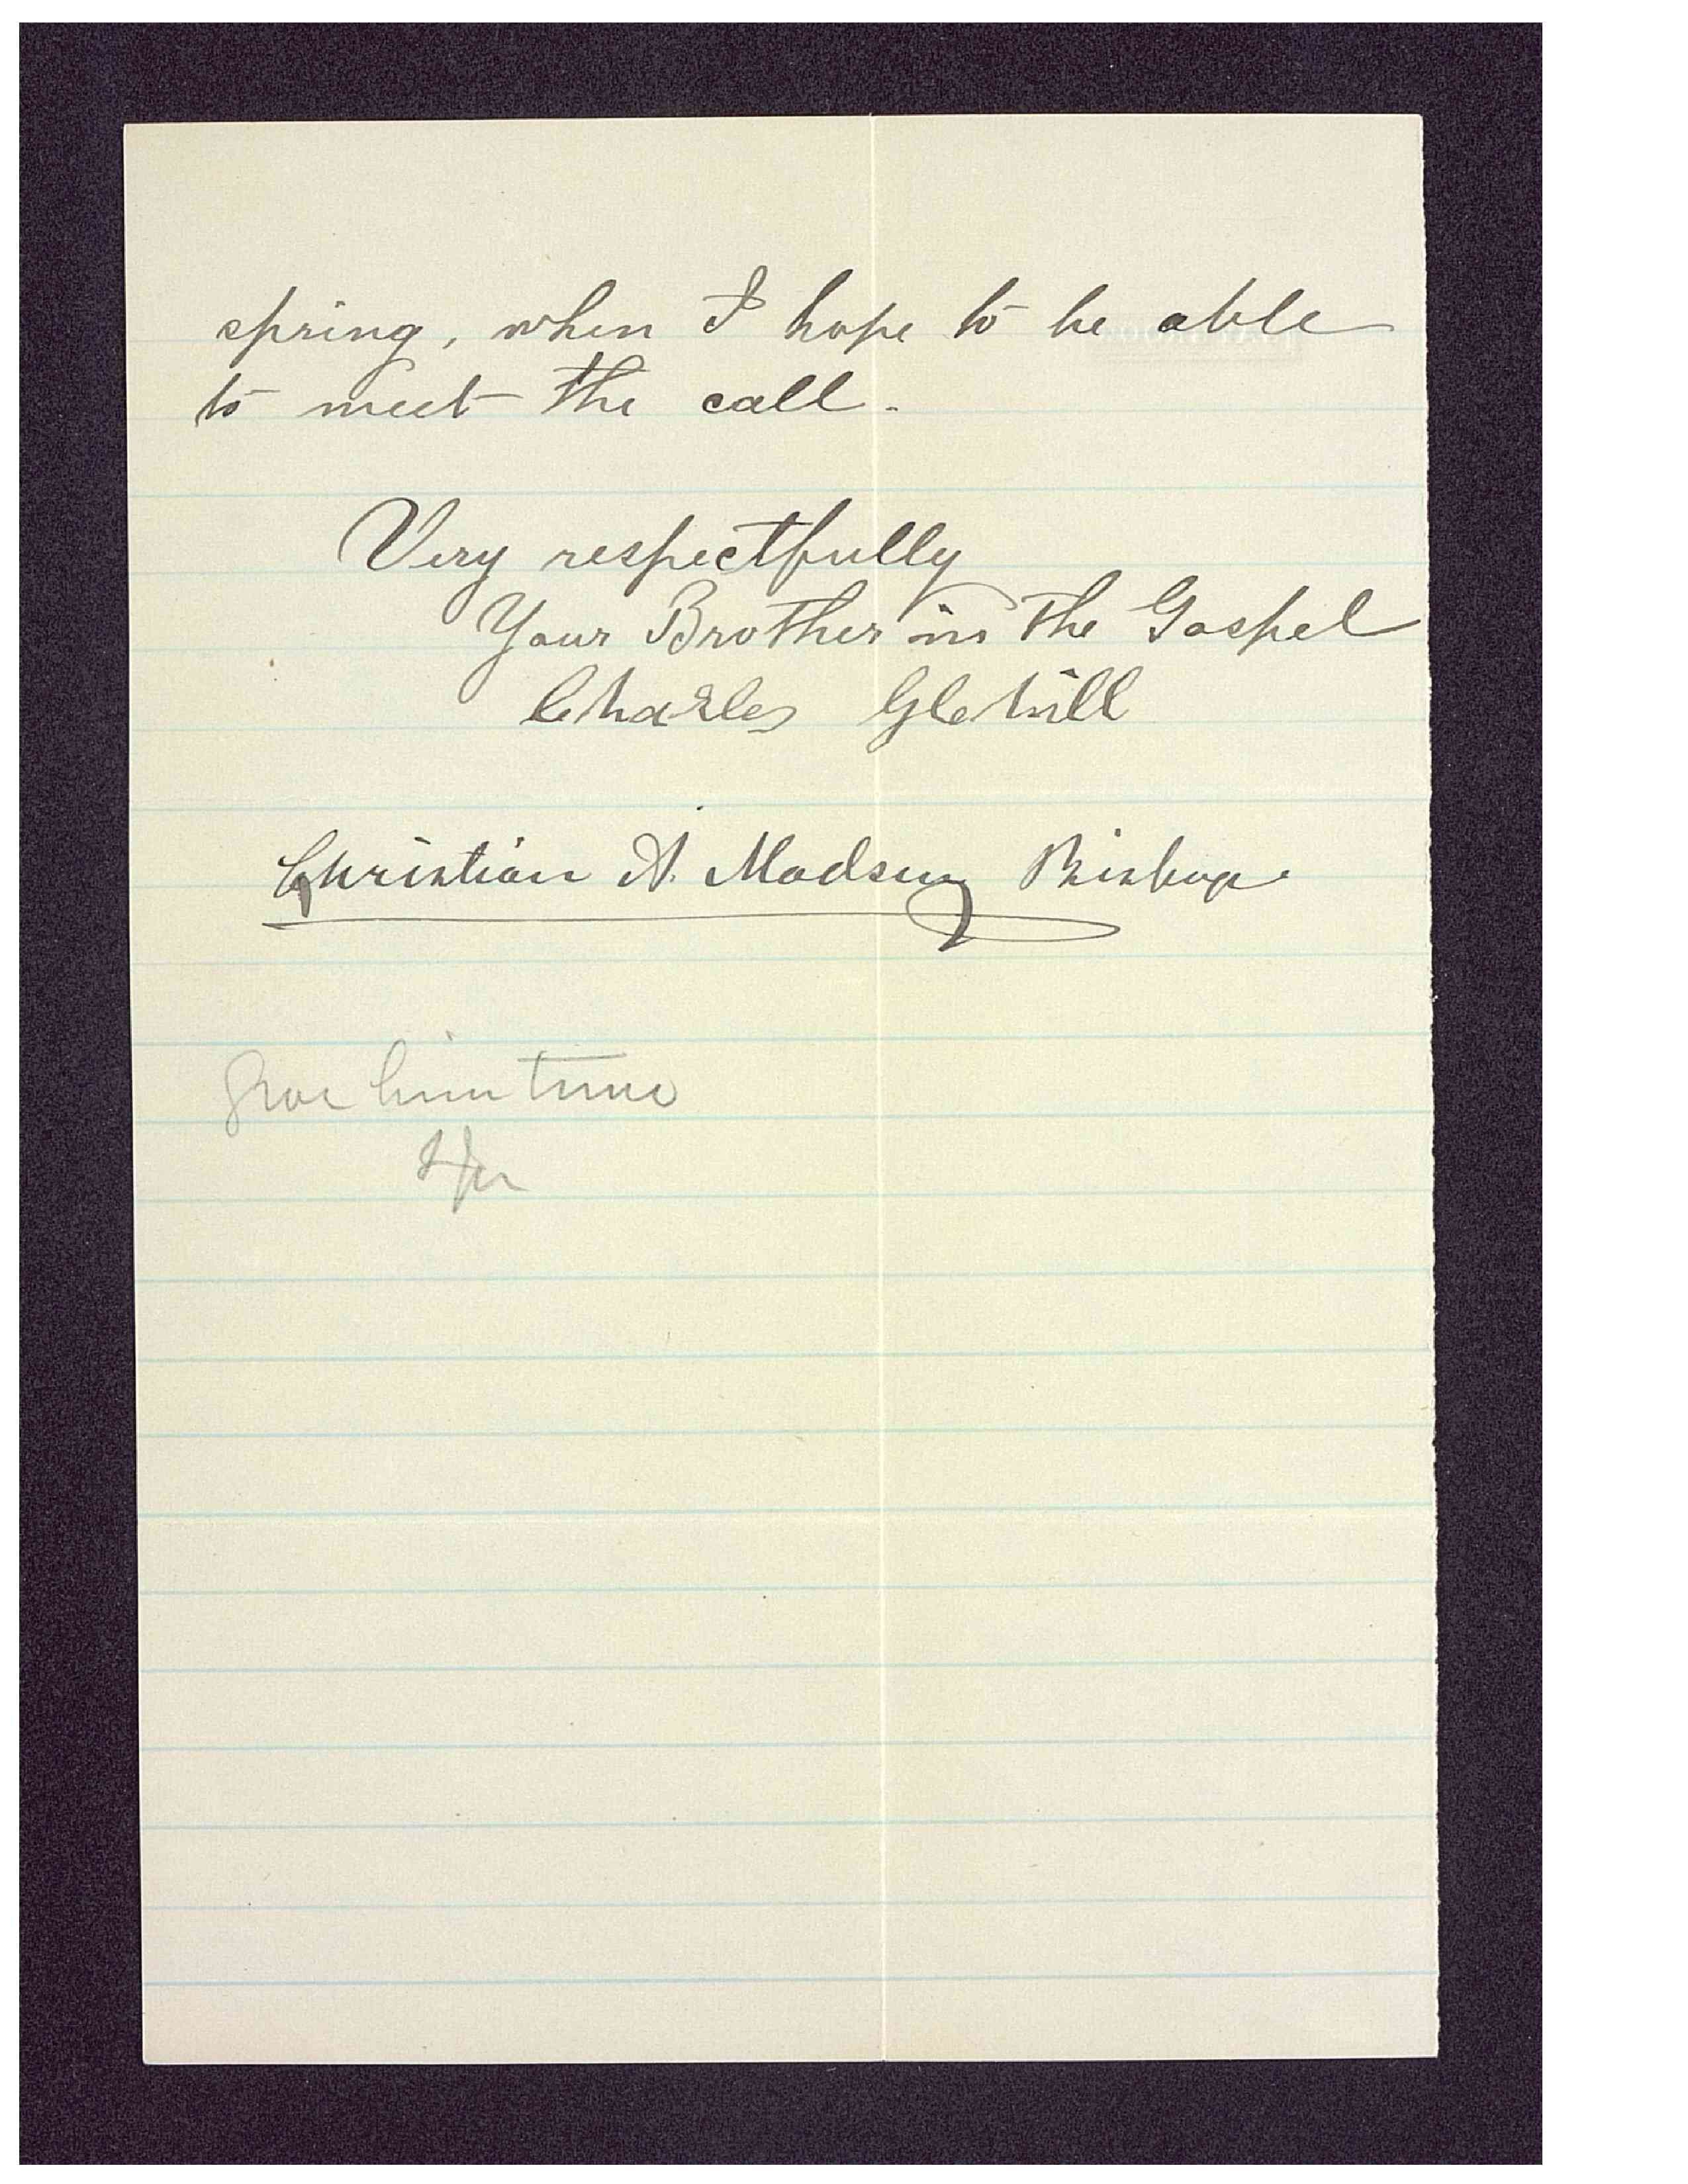 spring, when I hope to be able
to meet the call.
Very respectfully
Your Brother in the Gospel
Charles
Christian A. Madsen Bishop
Give him time